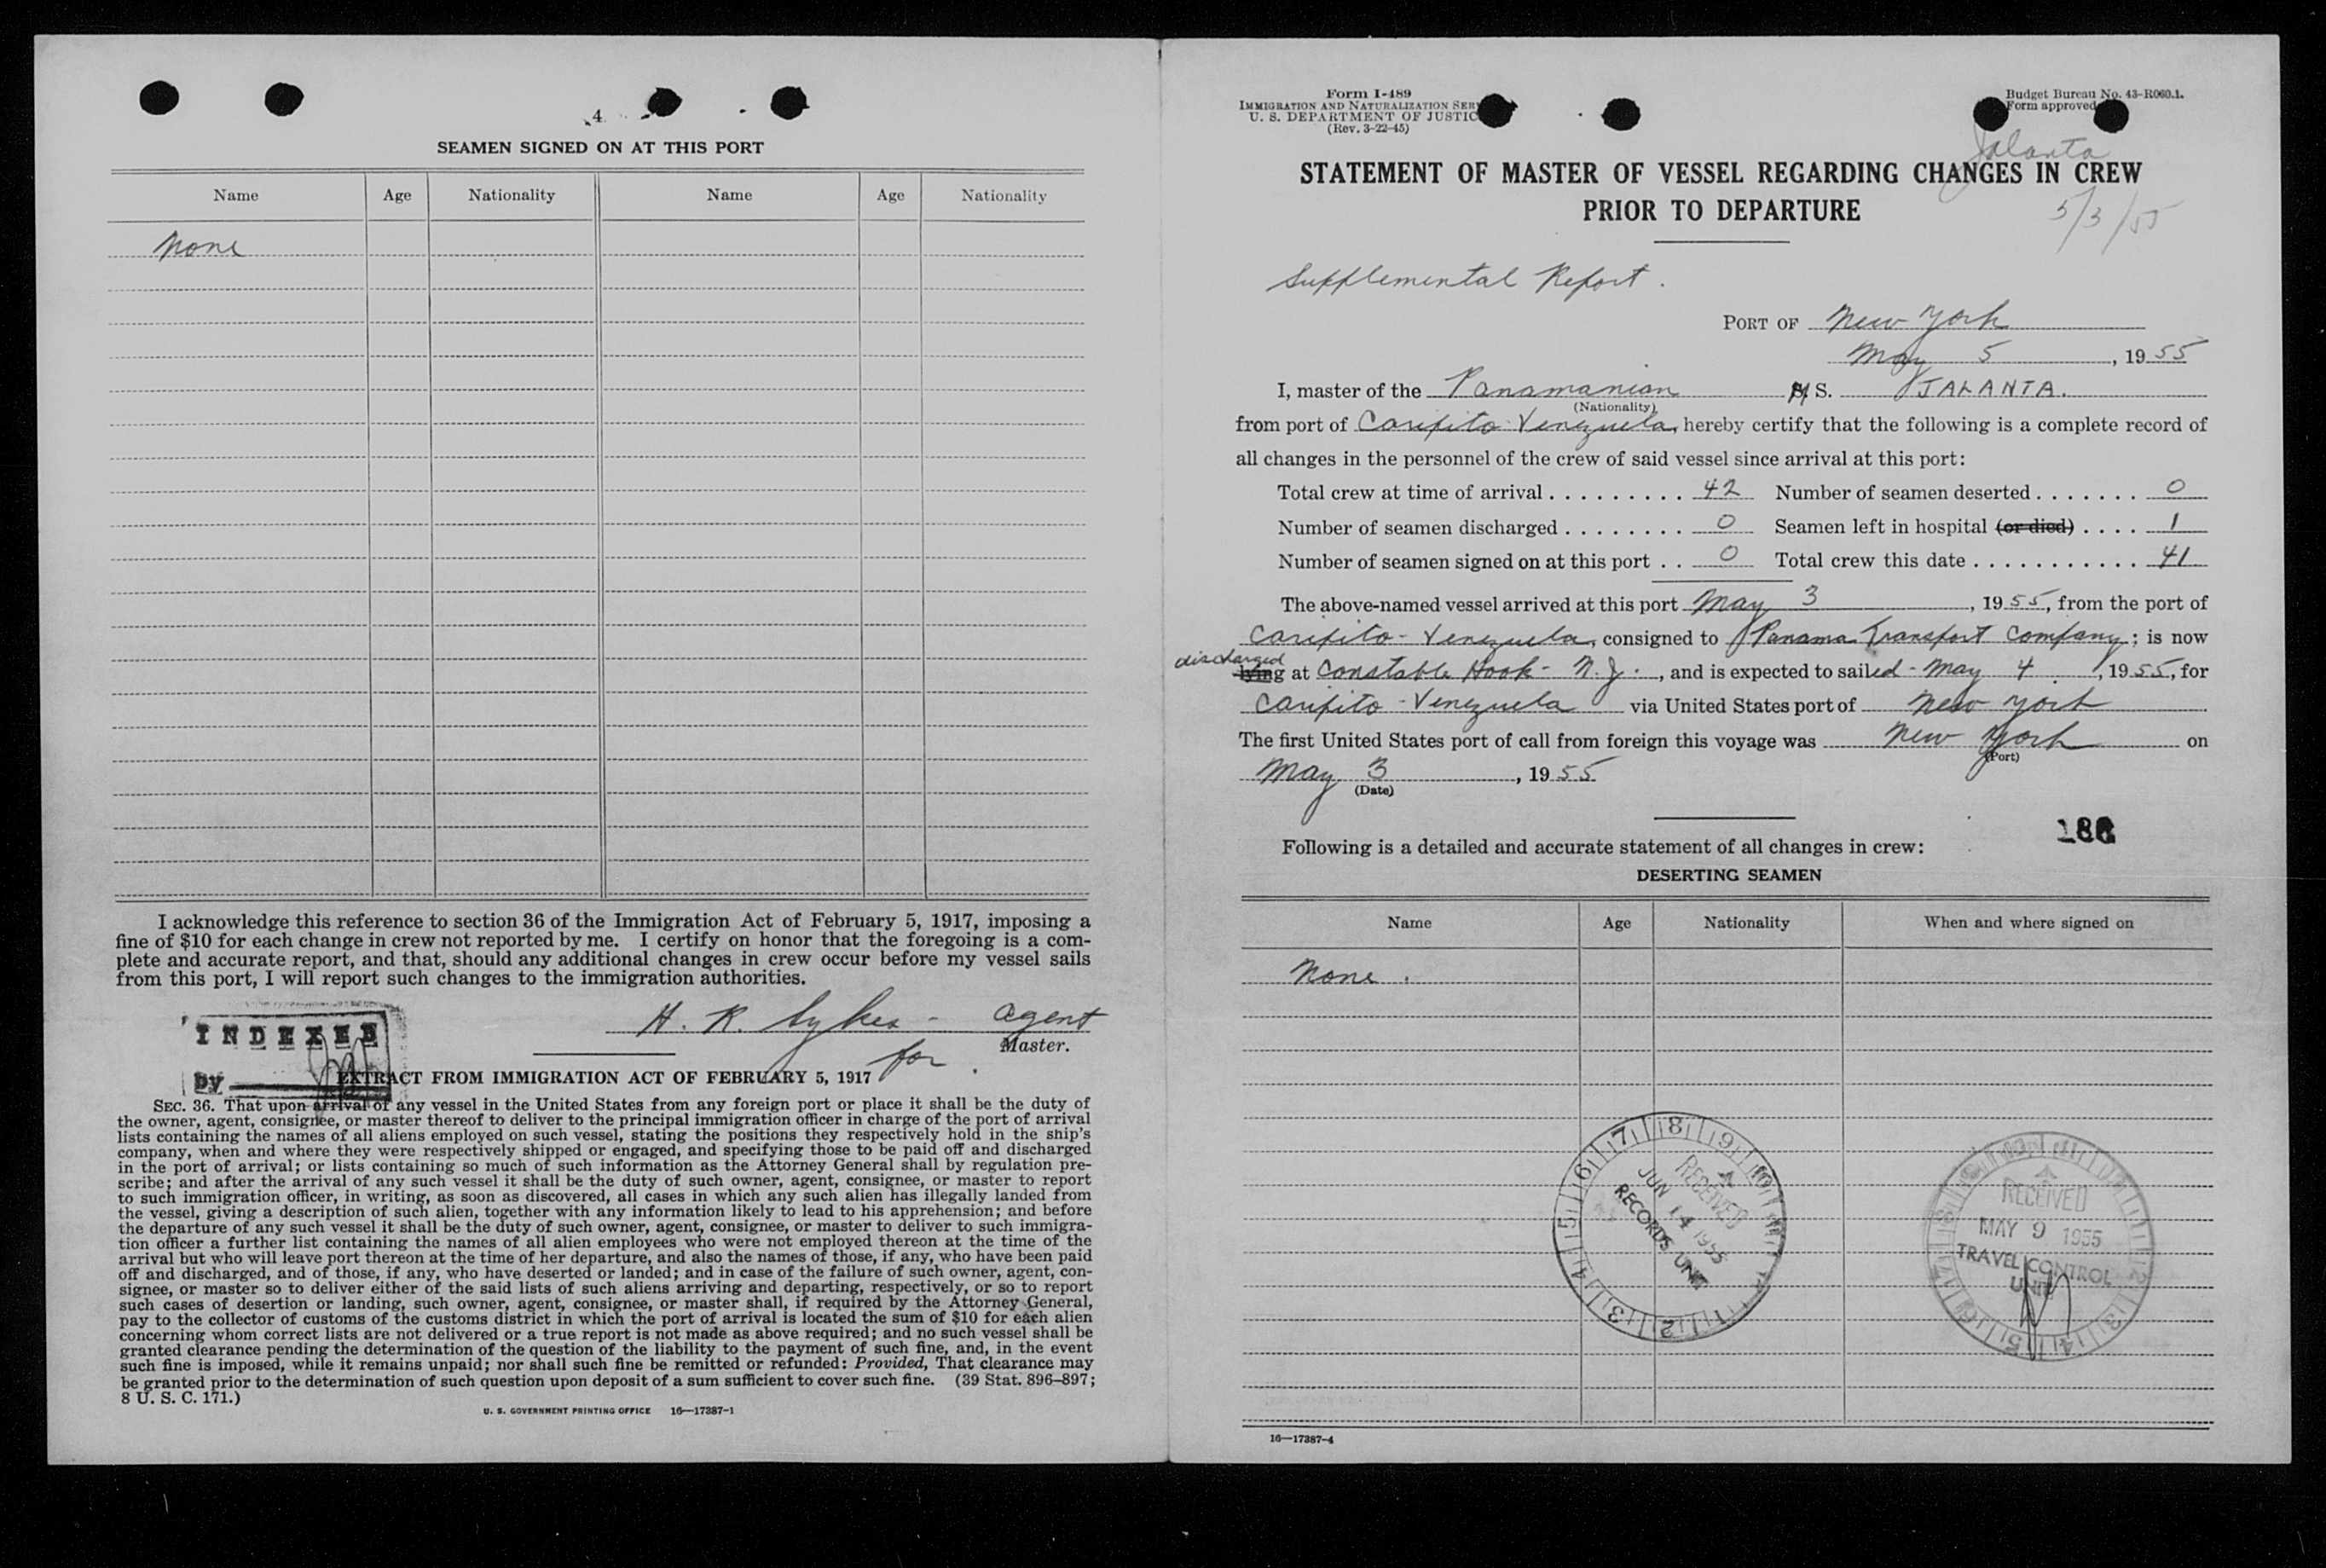 4
SEAMEN SIGNED ON AT THIS PORT
Name Age Nationality Name Age Nationality
None
I acknowledge this reference to section 36 of the Immigration Act of February 5, 1917, imposing a
fine of $10 for each change in crew not reported by me. I certify on honor that the foregoing is a com-
plete and accurate report, and that, should any additional changes in crew occur before my vessel sails
from this port, I will report such changes to the immigration authorities.
H. R. Sykes - Agent
for Master.
INDEXED
by
EXTRACT FROM IMMIGRATION ACT OF FEBRUARY 5, 1917
SEC. 36. That upon arrival of any vessel in the United States from any foreign port or place it shall be the duty of
the owner, agent, consignee, or master thereof to deliver to the principal immigration officer in charge of the port of arrival
lists containing the names of all aliens employed on such vessel, stating the positions they respectively hold in the ship's
company, when and where they were respectively shipped or engaged, and specifying those to be paid off and discharged
in the port of arrival; or lists containing so much of such information as the Attorney General shall by regulation pre-
scribe; and after the arrival of any such vessel it shall be the duty of such owner, agent, consignee, or master to report
to such immigration officer, in writing, as soon as discovered, all cases in which any such alien has illegally landed from
the vessel, giving a description of such alien, together with any information likely to lead to his apprehension; and before
the departure of any such vessel it shall be the duty of such owner, agent, consignee, or master to deliver to such immigra-
tion officer a further list containing the names of all alien employees who were not employed thereon at the time of the
arrival but who will leave port thereon at the time of her departure, and also the names of those, if any, who have been paid
off and discharged, and of those, if any, who have deserted or landed; and in case of the failure of such owner, agent, con-
signee, or master so to deliver either of the said lists of such aliens arriving and departing, respectively, or so to report
such cases of desertion or landing, such owner, agent, consignee, or master shall, if required by the Attorney General,
pay to the collector of customs of the customs district in which the port of arrival is located the sum of $10 for each alien
concerning whom correct lists are not delivered or a true report is not made as above required; and no such vessel shall be
granted clearance pending the determination of the question of the liability to the payment of such fine, and, in the event
such fine is imposed, while it remains unpaid; nor shall such fine be remitted or refunded: Provided, That clearance may
be granted prior to the determination of such question upon deposit of a sum sufficient to cover such fine. (39 Stat. 896–897;
8 U. S. C. 171.)
U. S. GOVERNMENT PRINTING OFFICE 16—17387-1
Form I-489
IMMIGRATION AND NATURALIZATION SER
U. S. DEPARTMENT OF JUSTIC
(Rev. 3-22-45)
Budget Bureau No. 43-R060.1.
Form approved
Jalanta
STATEMENT OF MASTER OF VESSEL REGARDING CHANGES IN CREW
PRIOR TO DEPARTURE
5/3/55
Supplemental Report.
PORT OF New York
May 5, 1955
I, master of the Panamanian S. JALANTA.
(Nationality)
from port of Caripito Venezuela, hereby certify that the following is a complete record of
all changes in the personnel of the crew of said vessel since arrival at this port:
Total crew at time of arrival . . . . . . . . . 42 Number of seamen deserted . . . . . . . 0
Number of seamen discharged . . . . . . . . 0 Seamen left in hospital (or died) . . . . 1
Number of seamen signed on at this port . . 0 Total crew this date . . . . . . . . . . . . 41
The above-named vessel arrived at this port May 3, 1955, from the port of
Caripito - Venezuela, consigned to Panama Transport Company; is now
discharged
lying at Constable Hook - N.J., and is expected to sailed - May 4, 1955, for
Caripito - Venezuela via United States port of New York
The first United States port of call from foreign this voyage was New York on
(Port)
May 3, 1955
(Date)
Following is a detailed and accurate statement of all changes in crew:
DESERTING SEAMEN
Name Age Nationality When and where signed on
None.
RECEIVED
JUN 14 1955
RECORDS UNIT
RECEIVED
MAY 9 1955
TRAVEL CONTROL
UNIT
16—17387-4